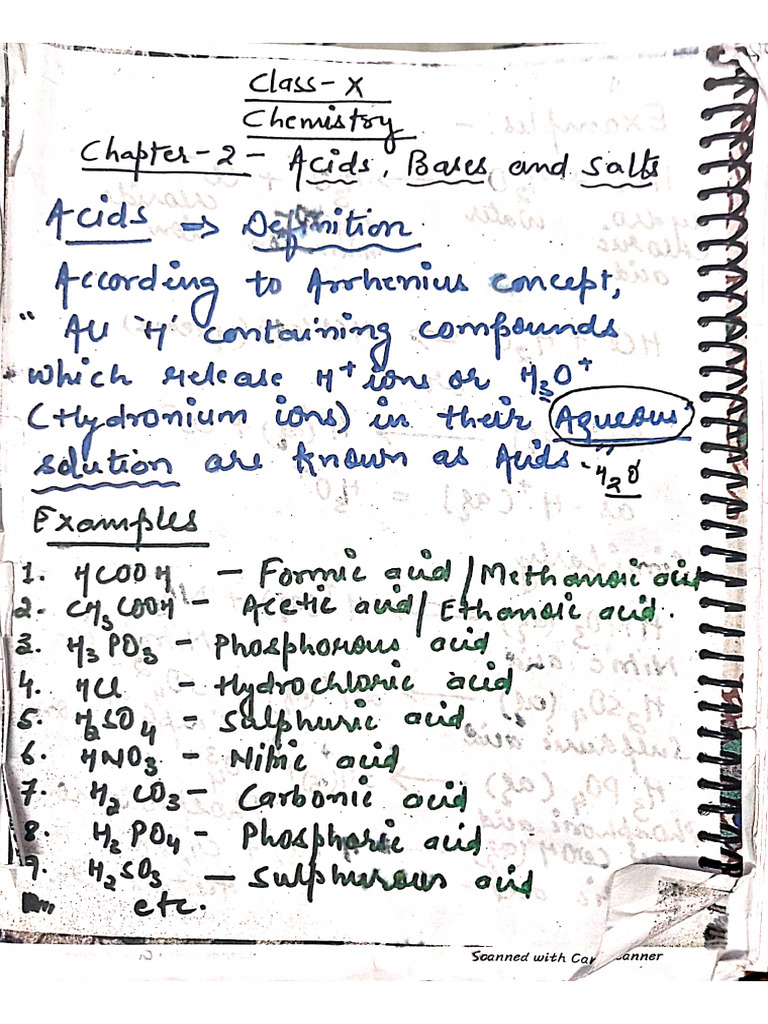 Class-X
Chemistry
Chapter-2- Acids, Bases and Salts
Acids → Definition
According to Arrhenius concept,
" All 'H' containing compounds
which release H⁺ ions or H₃O⁺
(Hydronium ions) in their Aqueous
solution are known as Acids."
H₂O
Examples
1. HCOOH - Formic acid / Methanoic acid
2. CH₃COOH - Acetic acid / Ethanoic acid.
3. H₃PO₃ - Phosphorous acid
4. HCl - Hydrochloric acid
5. H₂SO₄ - Sulphuric acid
6. HNO₃ - Nitric acid
7. H₂CO₃ - Carbonic acid
8. H₂PO₄ - Phosphoric acid
9. H₂SO₃ - Sulphurous acid
etc.
Scanned with Ca anner